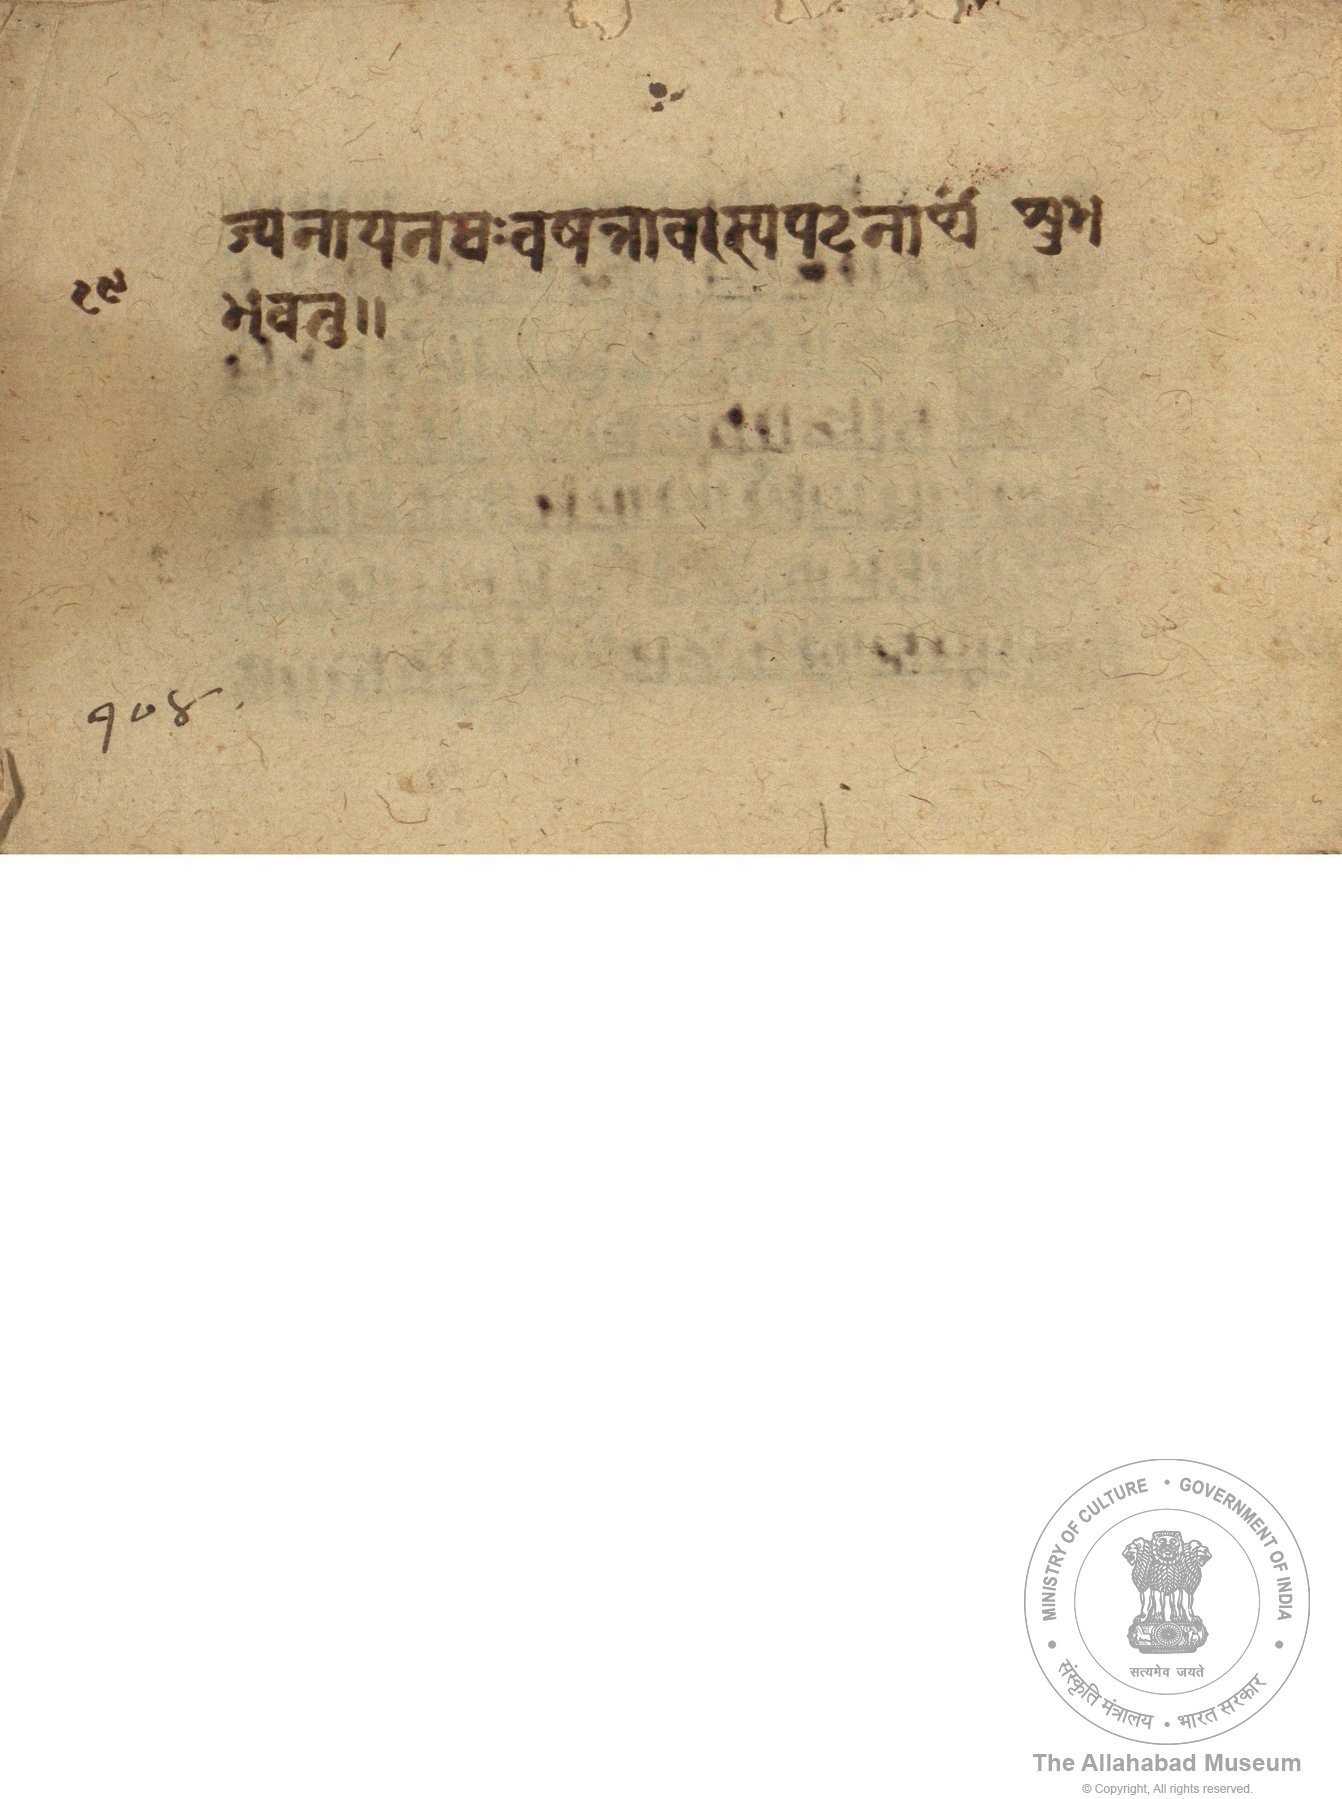 ज्यनायनघः वषन्नावास्पपटनार्थ्यं श्रुभ
२९
भंवतु॥
१०४
MINISTRY OF CULTURE • GOVERNMENT OF INDIA
सत्यमेव जयते
संस्कृति मंत्रालय • भारत सरकार
The Allahabad Museum
© Copyright, All rights reserved.